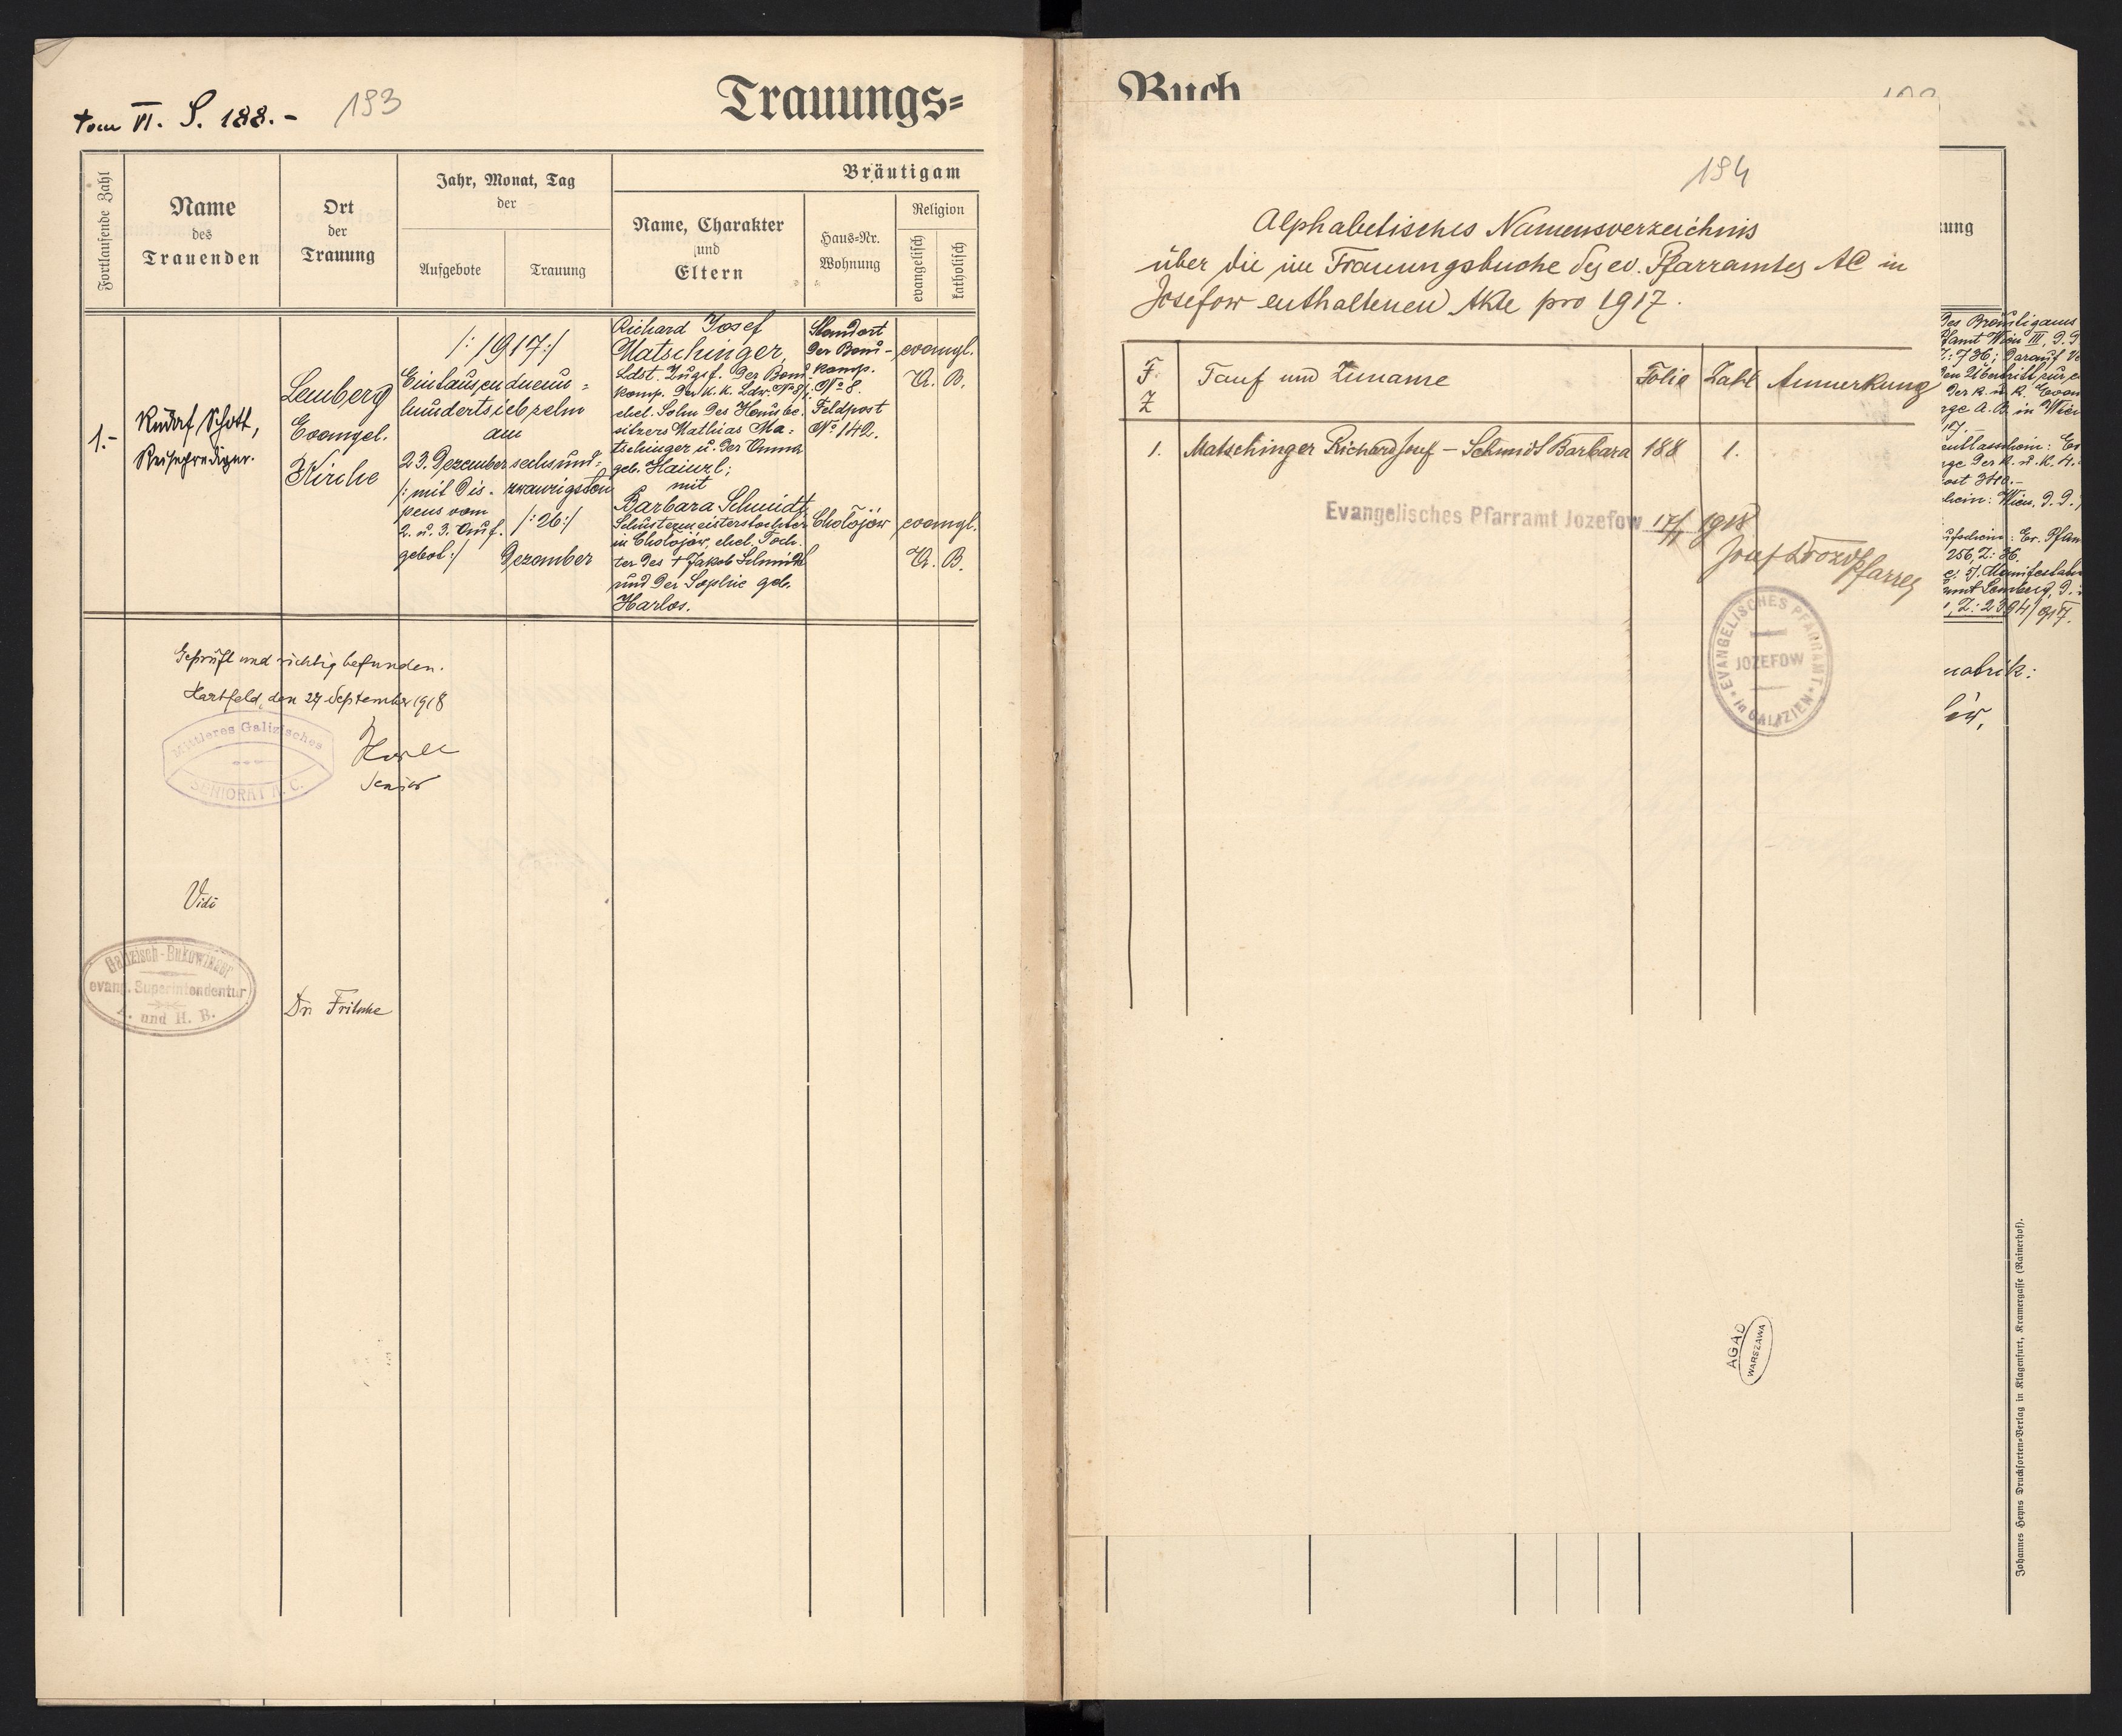 tom VI. S. 188.-
193
Trauungs=
Fortlaufende Zahl
Name
des
Trauenden
Ort
der
Trauung
Jahr, Monat, Tag
der
Aufgebote
Trauung
Bräutigam
Name, Charakter
und
Eltern
Haus=Nr.
Wohnung
Religion
evangelisch
katholisch
1.-
Rudolf Schott,
Reiseprediger.
Lemberg
Evangel.
Kirche
/: 1917:/
Eintausendneun=
hundertsiebzehn
am
23. Dezember
/: mit Dis-
pens vom
2. u. 3. Auf-
gebot:/
sechsund=
zwanzigsten
/:26:/
Dezember
Richard Josef
Matschinger,
Ldst. Zugsf. der Bau-
komp. der k. k. Ldw. No 8/
ehel. Sohn des Hausbe-
sitzers Mathias Ma=
tschinger u. der Anna
geb. Hainzl;
mit
Barbara Schmidt
Schustermeisterstochter
in Cholojów, ehel. Toch-
ter des † Jakob Schmidt
und der Sophie geb.
Harlos.
Standort
der Bau-
komp.
No 8.
Feldpost
No 149.
Cholojów
evangl.
A. B.
evangl.
A. B.
Geprüft und richtig befunden.
Hartfeld, den 27 September 1918
Mittleres Galizisches
SENIORAT A. C.
Senior
Vidi
Galizisch-Bukowinaer
evang. Superintendentur
A. und H. B.
Dr. Fritsche
Buch
194
Alphabetisches Namensverzeichnis
über die im Trauungsbuche des ev. Pfarramtes AC in
Josefow enthaltenen Akte pro 1917.
F.
Z
Tauf und Zuname
Folio
Zahl
Anmerkung
1.
Matschinger Richard Josef – Schmidt Barbara
188
1.
Evangelisches Pfarramt Jozefow
1918
Josef Drozd Pfarrer
EVANGELISCHES PFARRAMT
JOZEFOW
in GALIZIEN
AGAD
WARSZAWA
ung
des Bräutigams
Pfamt Wien III,
Z: 736; darauf
den Übertritt zur
der k. u. k. Evan
A. B. in Wien
der k. u. k.
Wien,
256, Z: 36
Manifestations
Lemberg,
Z: 2394/917.
Johannes Heyns Drucksorten=Verlag in Klagenfurt, Kramergasse (Rainerhof).